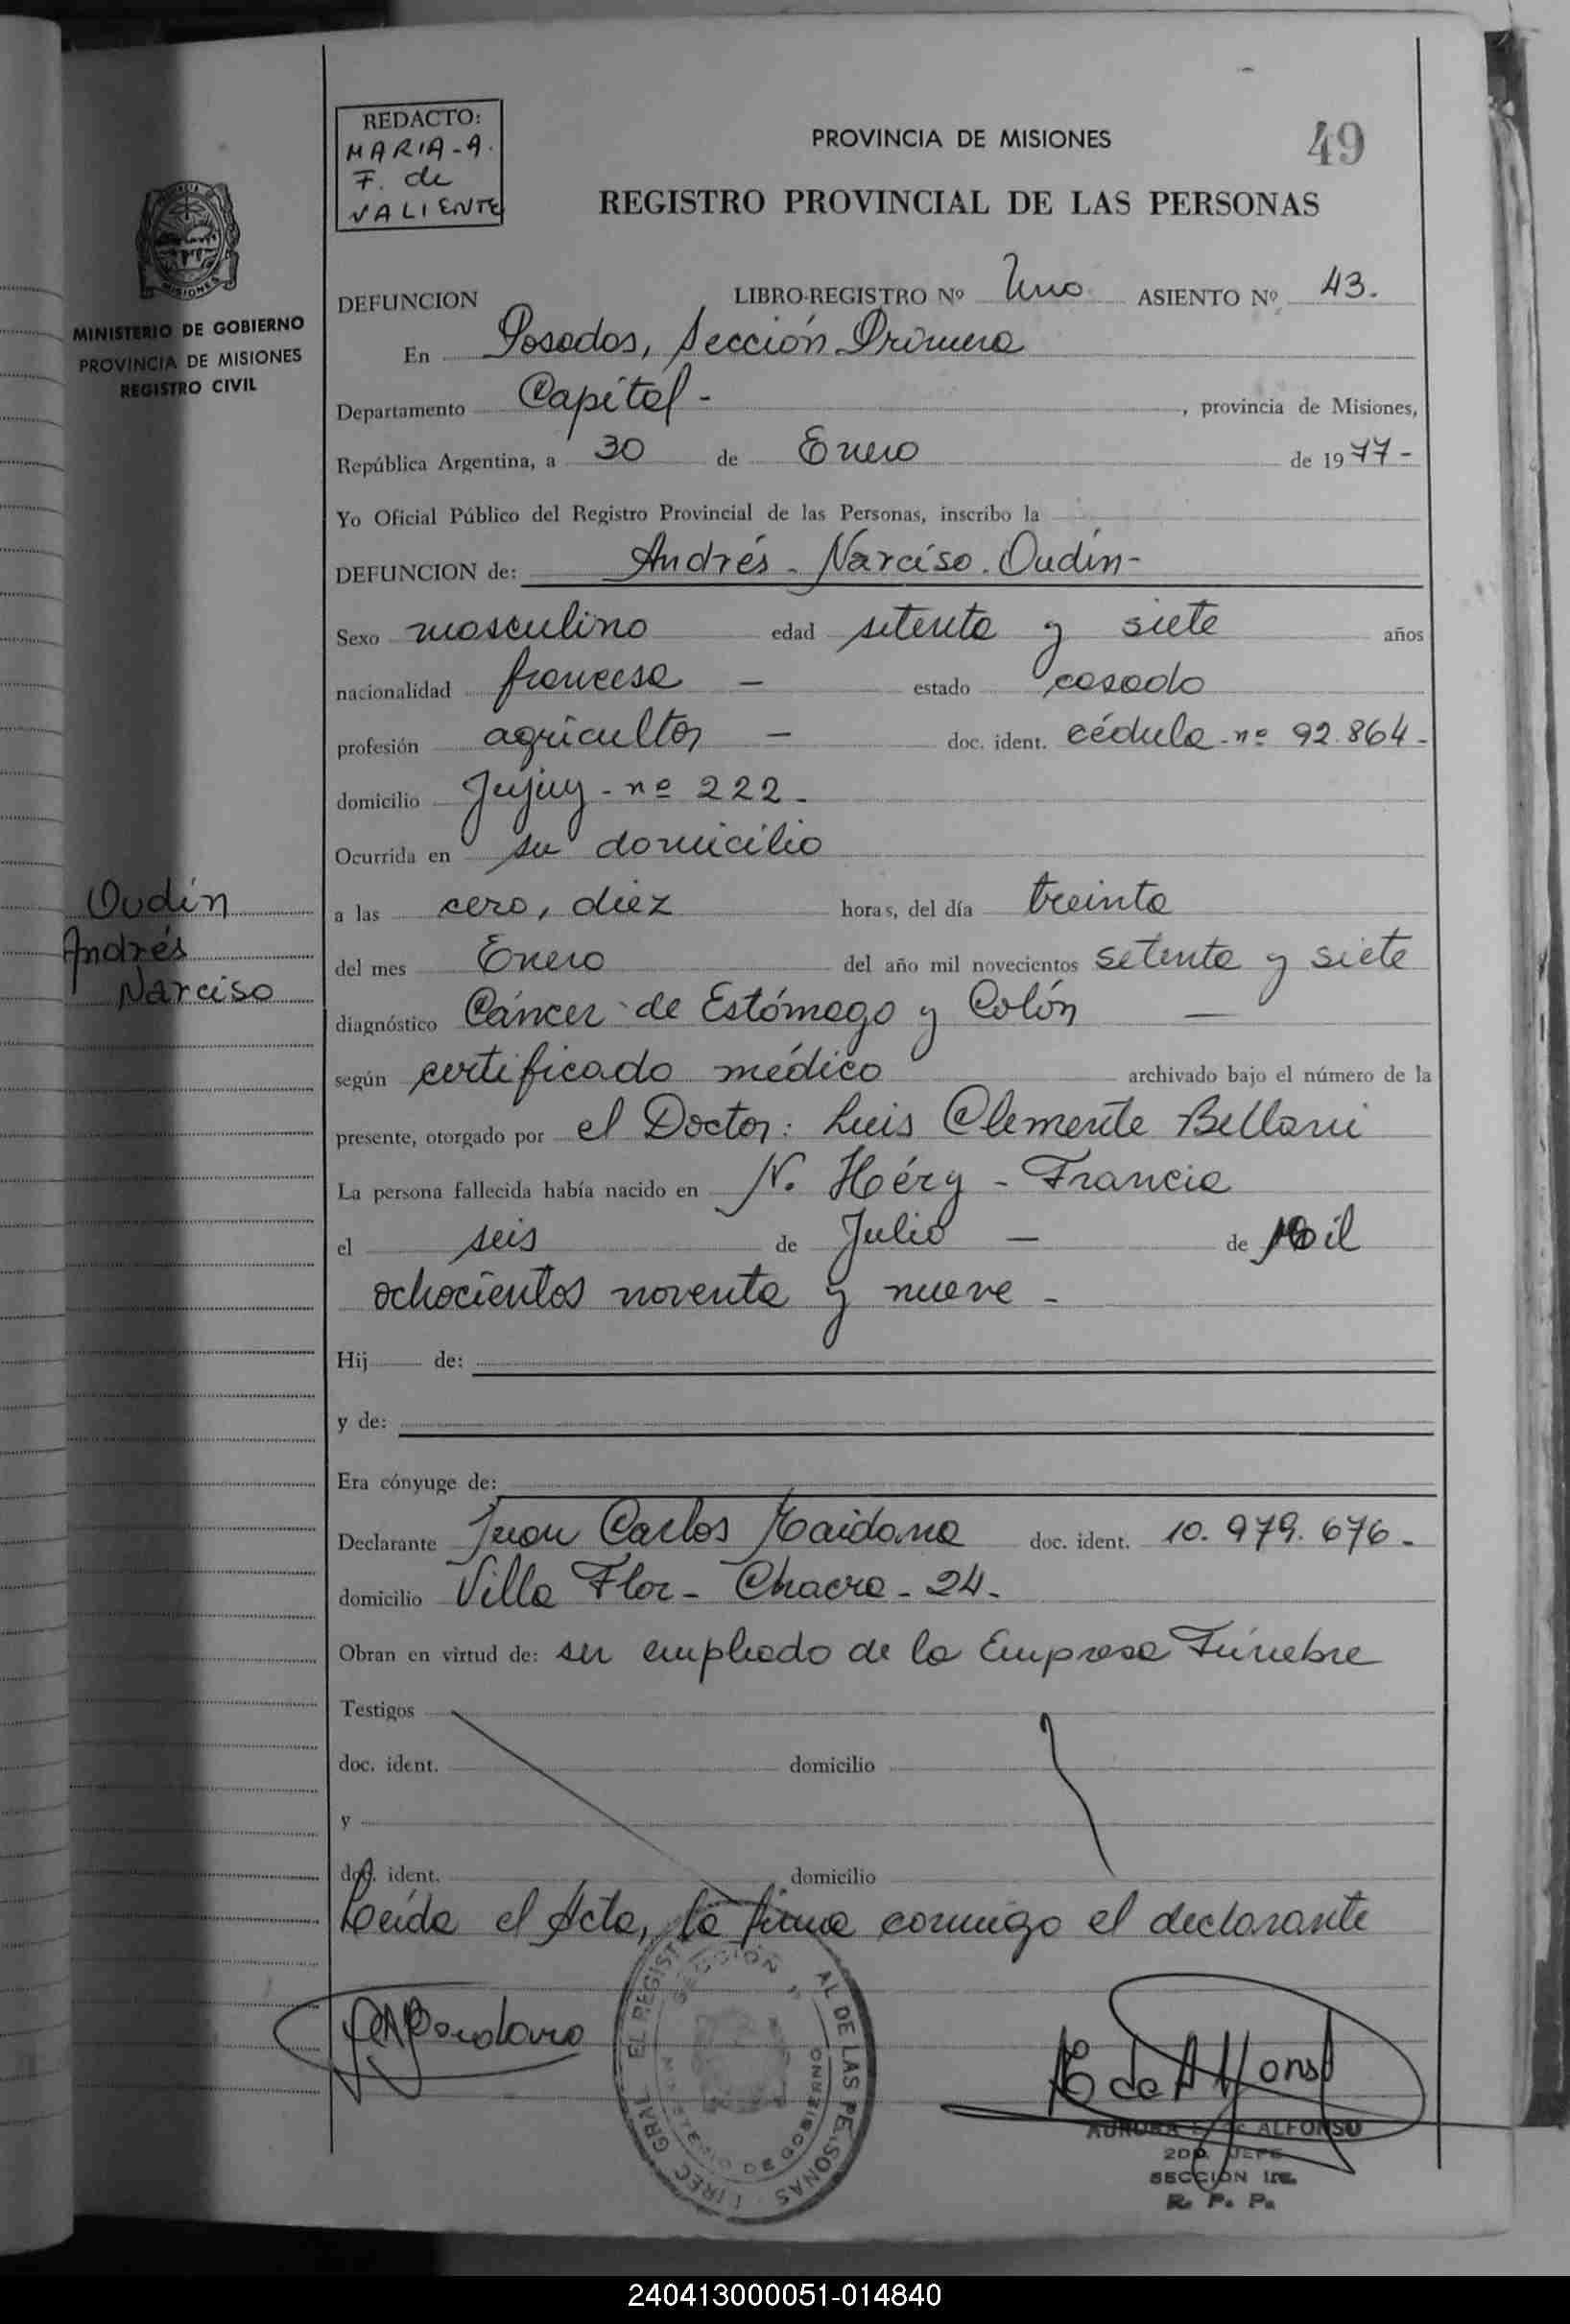 REDACTO:
MARIA-A.
F. de
VALIENTE
49
PROVINCIA DE MISIONES
REGISTRO PROVINCIAL DE LAS PERSONAS
MISIONES
MINISTERIO DE GOBIERNO
PROVINCIA DE MISIONES
REGISTRO CIVIL
DEFUNCION LIBRO-REGISTRO Nº Uno ASIENTO Nº 43.
En Posadas, Sección Primera
Departamento Capital - , provincia de Misiones,
República Argentina, a 30 de Enero de 1977-
Yo Oficial Público del Registro Provincial de las Personas, inscribo la
DEFUNCION de: Andrés - Narciso. Oudín-
Sexo masculino edad setenta y siete años
nacionalidad francesa - estado casado
profesión agricultor - doc. ident. cédula - nº 92.864-
domicilio Jujuy - nº 222.
Ocurrida en su domicilio
Oudín
Andrés
Narciso
a las cero, diez horas, del día treinta
del mes Enero del año mil novecientos setenta y siete
diagnóstico Cáncer de Estómago y Colón -
según certificado médico archivado bajo el número de la
presente, otorgado por el Doctor: Luis Clemente Bellani
La persona fallecida había nacido en N. Héry - Francia
el seis de Julio - de Mil
ochocientos noventa y nueve -
Hij de:
y de:
Era cónyuge de:
Declarante Juan Carlos Maidana doc. ident. 10.979.676-
domicilio Villa Flor - Chacra - 24-
Obran en virtud de: ser empleado de la Empresa Fúnebre
Testigos
doc. ident. domicilio
y
doc. ident. domicilio
Leída el Acta, la firma conmigo el declarante
EL REGIST AL DE LAS PERSONAS
SECCIÓN
DE GOBIERNO
A. de Alfonso
AURORA de ALFONSO
2DO. JEFE
SECCION 1ra.
R. P. P.
240413000051-014840